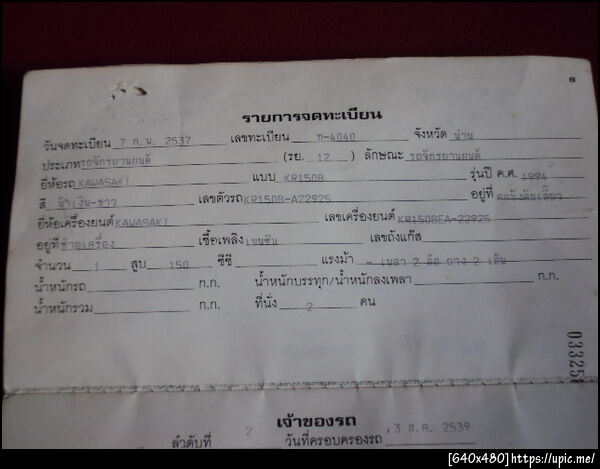 รายการจดทะเบียน
วันจดทะเบียน 7 ก.พ. 2537 เลขทะเบียน ก-4040 จังหวัด น่าน
ประเภท รถจักรยานยนต์ (รย. 12 ) ลักษณะ รถจักรยานยนต์
ยี่ห้อรถ KAWASAKI แบบ KR150B รุ่นปี ค.ศ. 1994
สี น้ำเงิน-ขาว เลขตัวรถ KR150B-A22925 อยู่ที่ คอบังคับเลี้ยว
ยี่ห้อเครื่องยนต์ KAWASAKI เลขเครื่องยนต์ KR150BEA-22925
อยู่ที่ ข้างเครื่อง เชื้อเพลิง เบนซิน เลขถังแก๊ส
จำนวน 1 สูบ 150 ซีซี แรงม้า - เพลา 2 ล้อ ยาง 2 เส้น
น้ำหนักรถ ก.ก. น้ำหนักบรรทุก/น้ำหนักลงเพลา ก.ก.
น้ำหนักรวม ก.ก. ที่นั่ง 2 คน
เจ้าของรถ
ลำดับที่ 2 วันที่ครอบครองรถ 3 ธ.ค. 2539
[640x480]https://upic.me/